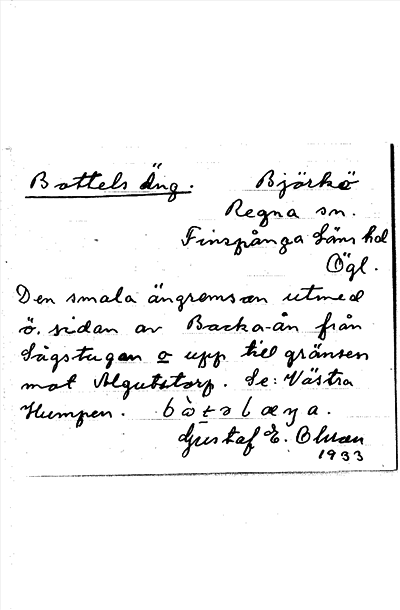 Bottels äng. Björkö
Regna sn.
Finspånga läns hd
Ögl.
Den smala ängremsan utmed
ö. sidan av Backa-ån från
Sågstugan o upp till gränsen
mot Algutstorp. Se: Västra
Humpen.
Gustaf E. Olsson
1933